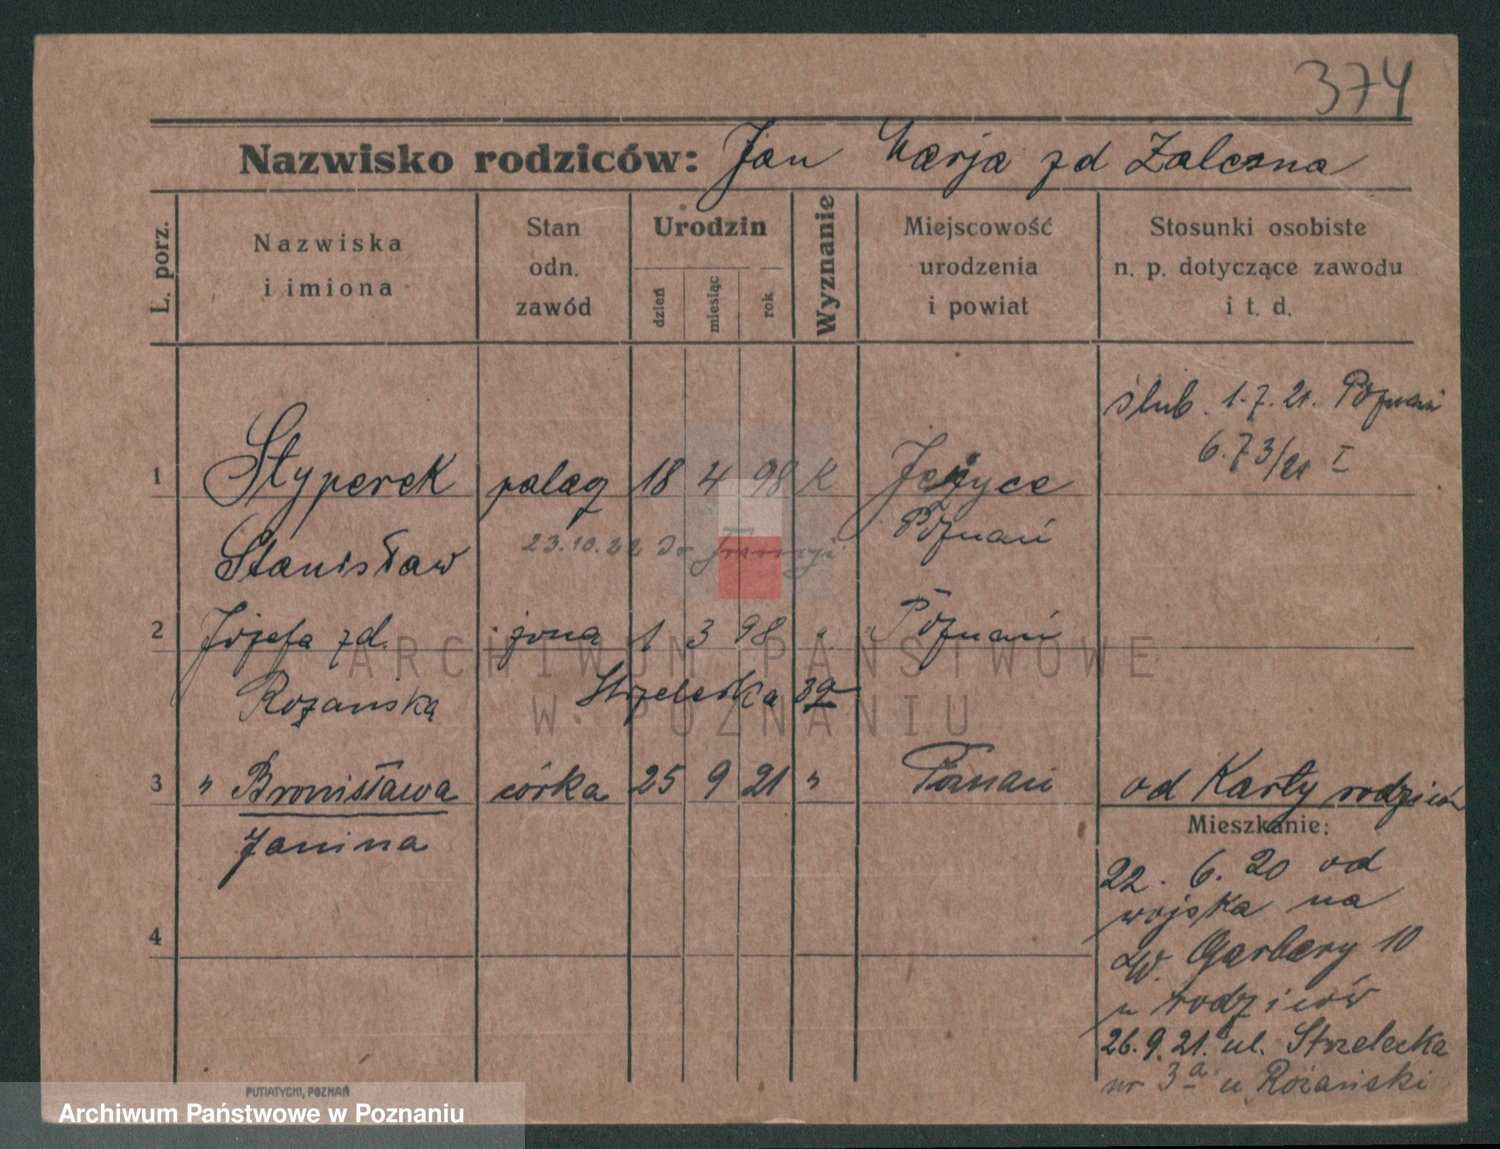 374
Nazwisko rodziców: Jan Marja zd Zalesna
L. porz.
Nazwiska
i imiona
Stan
odn.
zawód
Urodzin
dzień
miesiąc
rok
Wyznanie
Miejscowość
urodzenia
i powiat
Stosunki osobiste
n. p. dotyczące zawodu
i t. d.
ślub. 1.7.21. Poznań
673/21 I
1 Styperek palacz 18 4 98 K Jeżyce
Stanisław 23.10.22 do Francji Poznań
2 Józefa zd. żona 1 3 98 " Poznań
Rożańska Strzelecka 3a
3 " Bronisława córka 25 9 21 " Poznań od Karty rodziców
Janina
Mieszkanie:
22. 6. 20 od
wojska na
W. Garbary 10
u rodziców
4
26.9.21. ul. Strzelecka
nr 3a u Rożański
PUTIATYCKI, POZNAŃ
ARCHIWUM PAŃSTWOWE
W POZNANIU
Archiwum Państwowe w Poznaniu